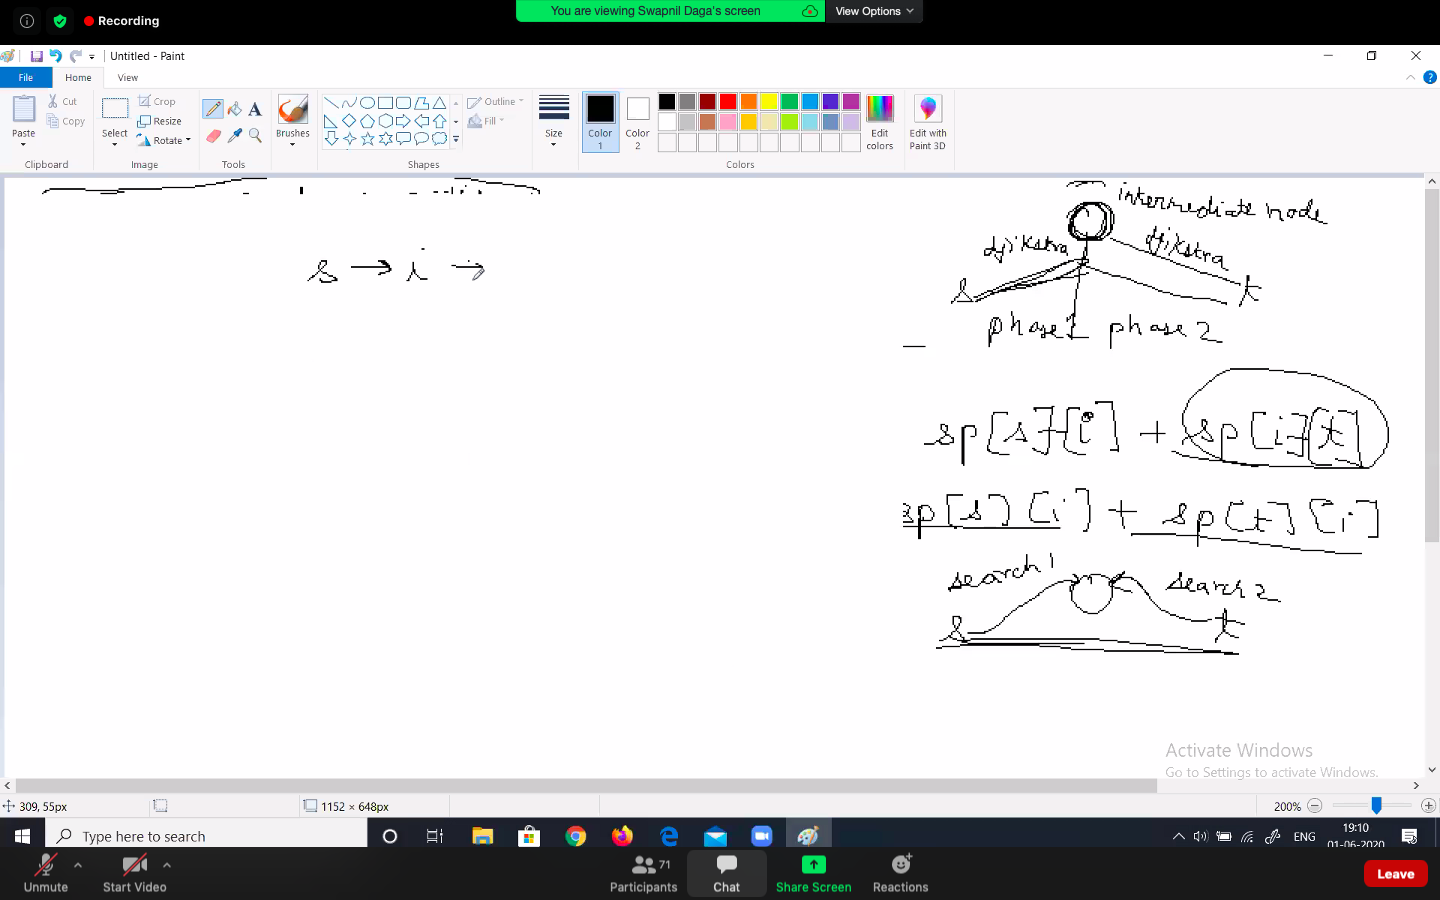 Recording
You are viewing Swapnil Daga's screen
View Options
Untitled - Paint
File
Home
View
Paste
Cut
Copy
Clipboard
Select
Crop
Resize
Rotate
Image
A
Tools
Brushes
Shapes
Outline
Fill
Size
Color 1
Color 2
Edit colors
Edit with Paint 3D
Colors
s → i →
intermediate node
djikstra djikstra
s t
phase 1 phase 2
sp[s][i] + sp[i][t]
sp[s][i] + sp[t][i]
search 1 search 2
s t
Activate Windows
Go to Settings to activate Windows.
309, 55px
1152 × 648px
200%
Type here to search
ENG
19:10
01-06-2020
Unmute
Start Video
Participants
71
Chat
Share Screen
Reactions
Leave